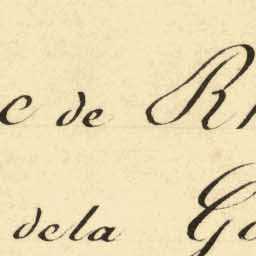 c de R
dela G